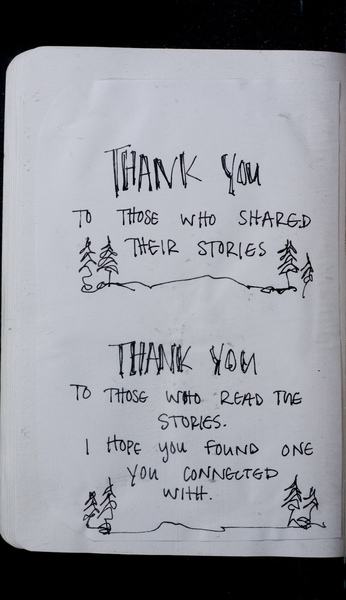 THANK YOU
TO THOSE WHO SHARED
THEIR STORIES
THANK YOU
TO THOSE WHO READ THE
STORIES.
I HOPE YOU FOUND ONE
YOU CONNECTED
WITH.